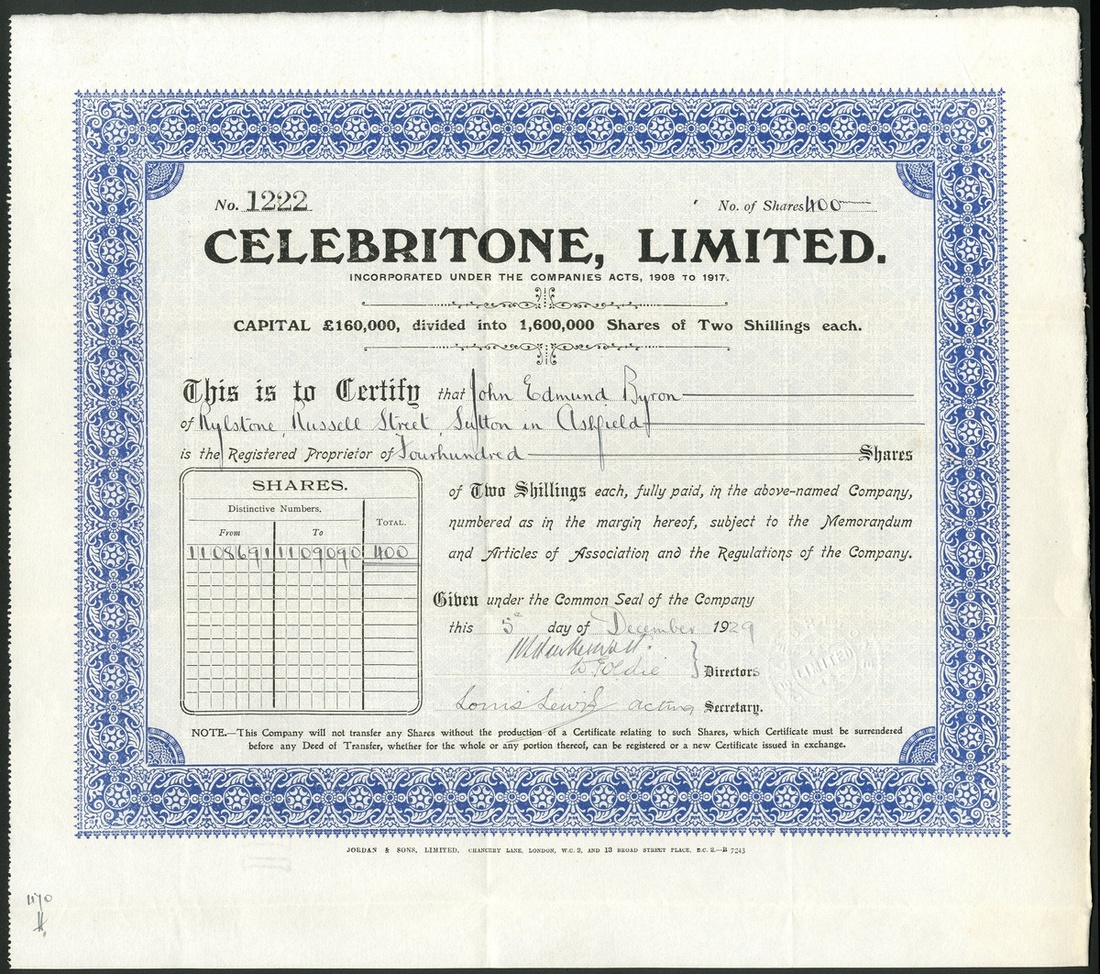 No. 1222 No. of Shares 400
CELEBRITONE, LIMITED.
INCORPORATED UNDER THE COMPANIES ACTS, 1908 TO 1917.
CAPITAL £160,000, divided into 1,600,000 Shares of Two Shillings each.
This is to Certify that John Edmund Byron
of Rylstone, Russell Street, Sutton in Ashfield
is the Registered Proprietor of Fourhundred Shares
SHARES.
Distinctive Numbers.
TOTAL.
From To
1108691 1109090 400
of Two Shillings each, fully paid, in the above-named Company,
numbered as in the margin hereof, subject to the Memorandum
and Articles of Association and the Regulations of the Company.
Given under the Common Seal of the Company
this 5th day of December 1929
Directors
LIMITED
Louis Lewis acting Secretary.
NOTE.—This Company will not transfer any Shares without the production of a Certificate relating to such Shares, which Certificate must be surrendered
before any Deed of Transfer, whether for the whole or any portion thereof, can be registered or a new Certificate issued in exchange.
JORDAN & SONS, LIMITED, CHANCERY LANE, LONDON, W.C. 2, AND 13 BROAD STREET PLACE, E.C. 2.—B 7243